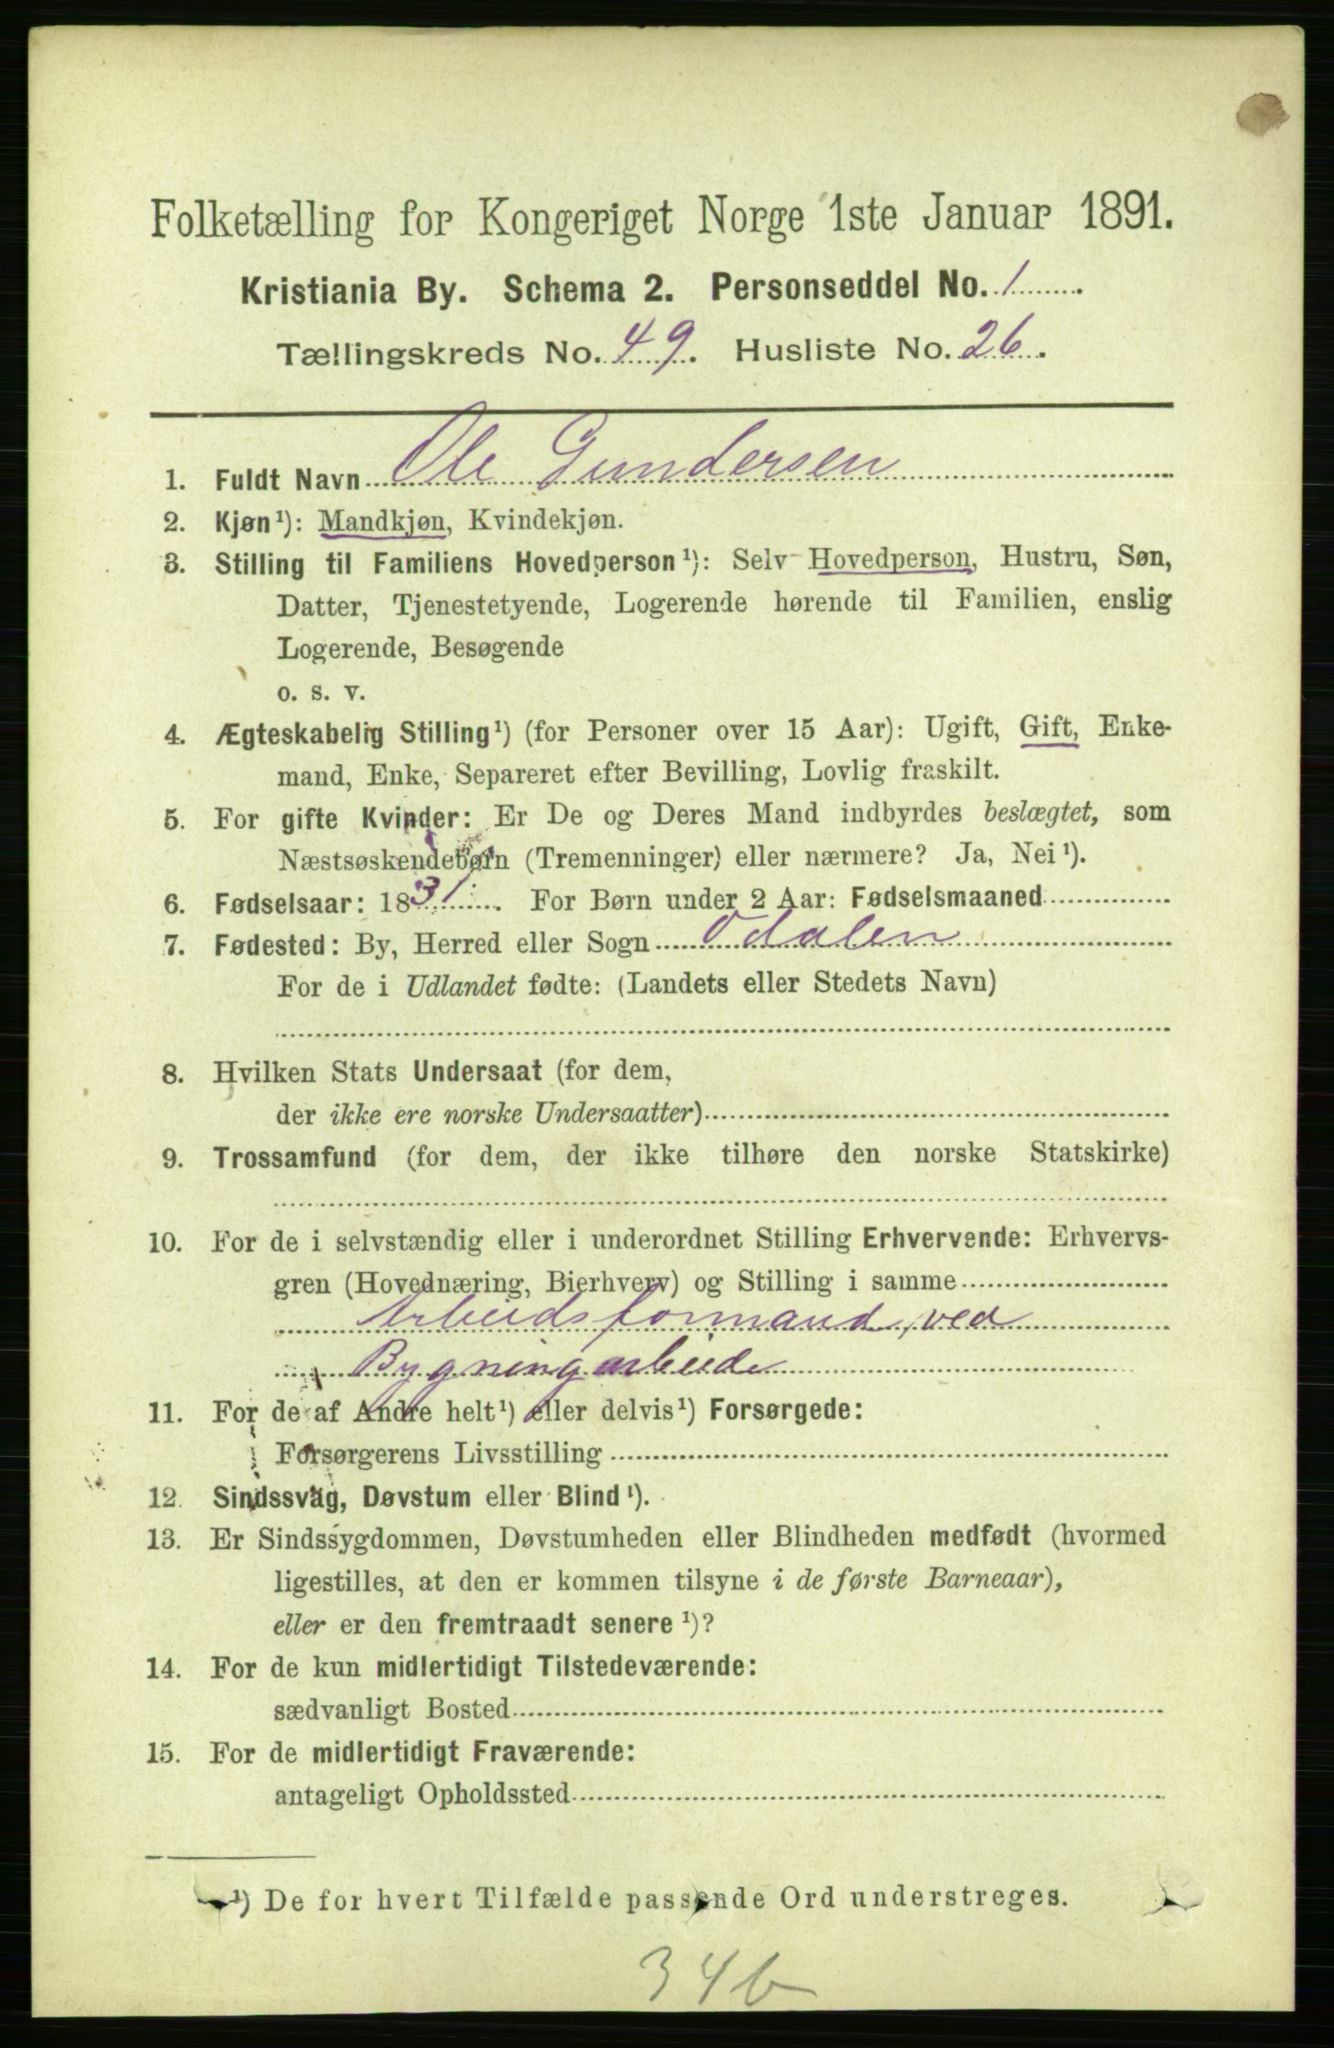 Folketælling for Kongeriget Norge 1ste Januar 1891.
Kristiania By. Schema 2. Personseddel No. 1.
Tællingskreds No. 49. Husliste No. 26.
1. Fuldt Navn Ole Gundersen
2. Kjøn¹): Mandkjøn, Kvindekjøn.
3. Stilling til Familiens Hovedperson¹): Selv Hovedperson, Hustru, Søn,
Datter, Tjenestetyende, Logerende hørende til Familien, enslig
Logerende, Besøgende
o. s. v.
4. Ægteskabelig Stilling¹) (for Personer over 15 Aar): Ugift, Gift, Enke-
mand, Enke, Separeret efter Bevilling, Lovlig fraskilt.
5. For gifte Kvinder: Er De og Deres Mand indbyrdes beslægtet, som
Næstsøskendebørn (Tremenninger) eller nærmere? Ja, Nei¹).
6. Fødselsaar: 1831. For Børn under 2 Aar: Fødselsmaaned
7. Fødested: By, Herred eller Sogn Odalen
For de i Udlandet fødte: (Landets eller Stedets Navn)
8. Hvilken Stats Undersaat (for dem,
der ikke ere norske Undersaatter)
9. Trossamfund (for dem, der ikke tilhøre den norske Statskirke)
10. For de i selvstændig eller i underordnet Stilling Erhvervende: Erhvervs-
gren (Hovednæring, Bierhverv) og Stilling i samme
Arbeidsformand ved
Bygningarbeide
11. For de af Andre helt¹) eller delvis¹) Forsørgede:
Forsørgerens Livsstilling
12. Sindssvag, Døvstum eller Blind¹).
13. Er Sindssygdommen, Døvstumheden eller Blindheden medfødt (hvormed
ligestilles, at den er kommen tilsyne i de første Barneaar),
eller er den fremtraadt senere¹)?
14. For de kun midlertidigt Tilstedeværende:
sædvanligt Bosted
15. For de midlertidigt Fraværende:
antageligt Opholdssted
¹) De for hvert Tilfælde passende Ord understreges.
34b